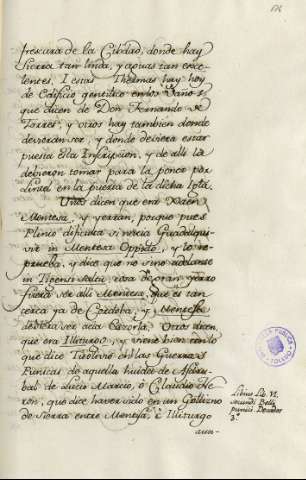 frescura de la Ciudad, donde hay
sierra tan linda, y aguas tan exce-
lentes. I estas Thermas hay hoy
de Edificio gentilico en los Baños
que dicen de Don Fernando de
Torres, y otros hay tambien donde
devieran ser, y donde deviera estar
puesta esta Inscripcion, y de alli la
devieron tomar para la poner por
lintel en la puerta de la dicha
Unos dicen que era Jaen
Mentesa, y yerran, porque pues
Plinio dificulta si nacia Guadalqui-
vir in Mentesa Oppido, y lo re-
prueba, y dice que no sino adelante
in Tugensi saltu, cosa de gran yerro
fuera ser alli Mentesa, que es tan
cerca ya de Cordoba, y Mentesa
deviera ser acia Cazorla. Otros dicen,
que era Iliturgo, y viene bien con lo
que dice Titolivio en las Guerras
Punicas de aquella huida de Asdru-
bal de Lucio Marcio, ò Claudio Ne-
ron, que dice haver sido en un
de Sierra entre Mentesa, è Iliturgo
aun-
Libius Lib. VI.
secundi Belli
punici Decades
3ª